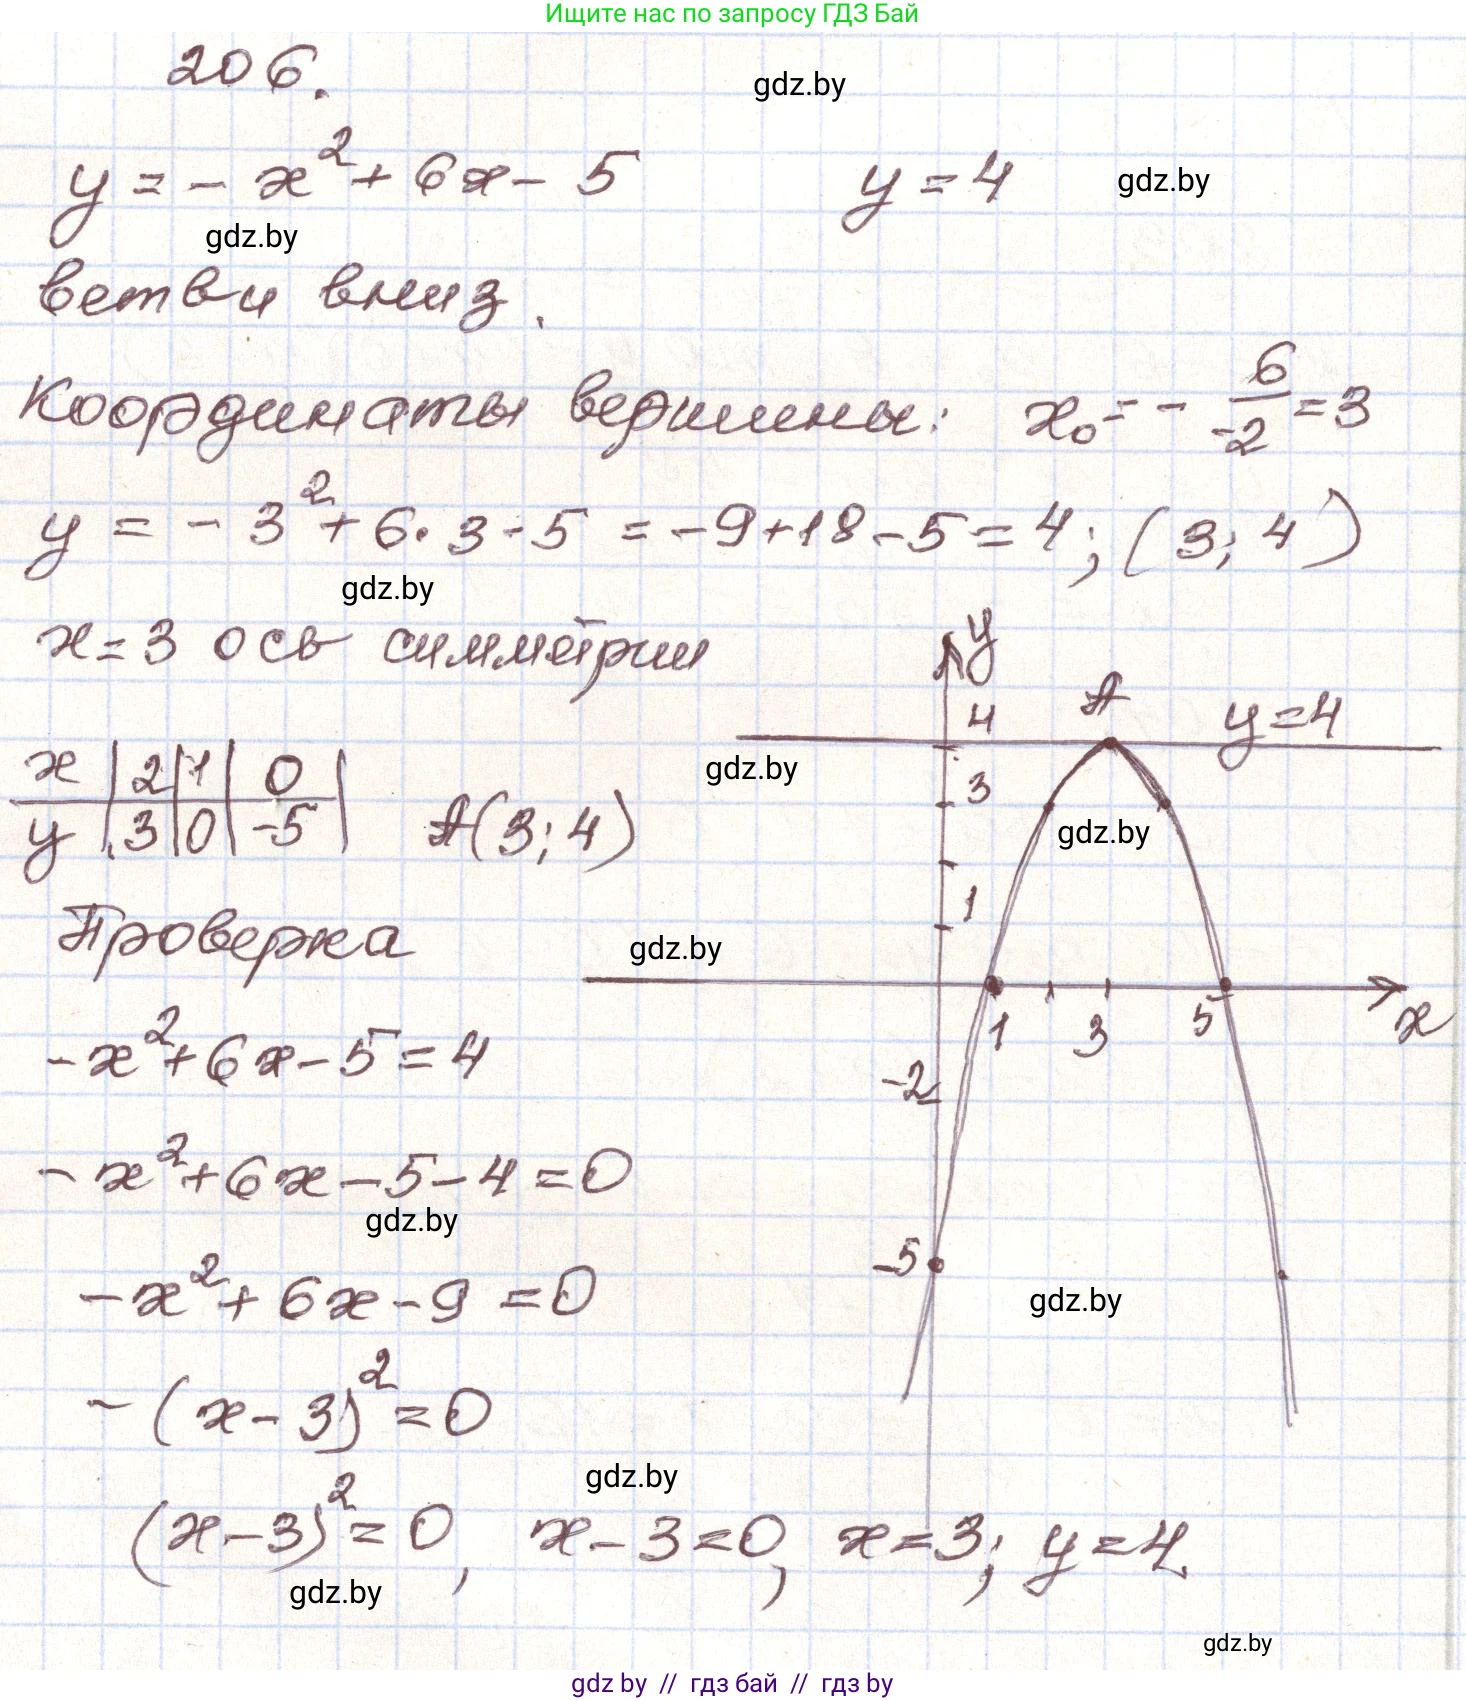 Ищите нас по запросу ГДЗ Бай
206.
gdz.by
y = - x² + 6x - 5
y = 4
gdz.by
gdz.by
ветви вниз.
Координаты вершины: x₀ = - 6/-2 = 3
y = - 3² + 6 · 3 - 5 = -9 + 18 - 5 = 4; (3; 4)
gdz.by
x = 3 ось симметрии
y
A
y = 4
4
x | 2 | 1 | 0 |
y | 3 | 0 | -5 |
A(3; 4)
gdz.by
3
gdz.by
1
Проверка
gdz.by
1
3
5
x
-x² + 6x - 5 = 4
-2
-x² + 6x - 5 - 4 = 0
gdz.by
-5
-x² + 6x - 9 = 0
gdz.by
- (x - 3)² = 0
gdz.by
(x - 3)² = 0, x - 3 = 0, x = 3; y = 4.
gdz.by
gdz.by
gdz by // гдз бай // гдз by